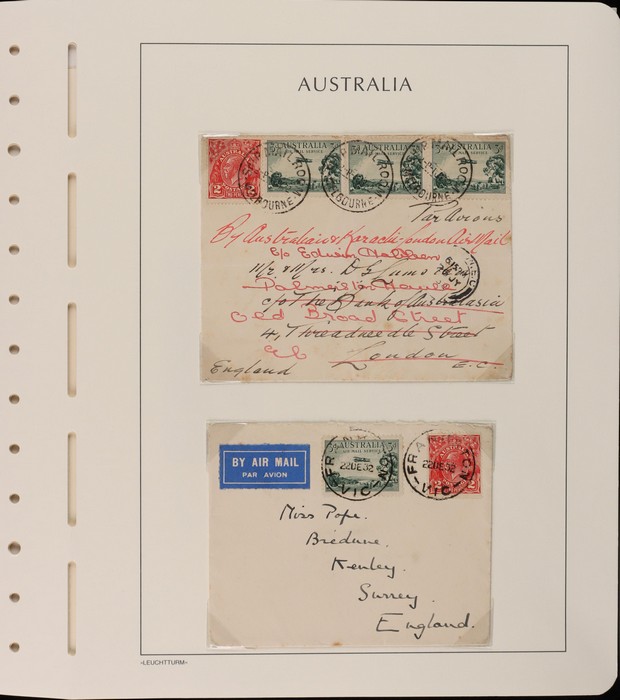 AUSTRALIA
AUSTRALIA
AIR MAIL SERVICE
AUSTRALIA
AIR MAIL SERVICE
AUSTRALIA
AIR MAIL SERVICE
2 2
Par Avion
By Australian & Karachi-London Air Mail
c/o Edwin
Mr & Mrs. D G
Palmerston House
c/o The Bank of Australasia
Old Broad Street
4, Threadneedle Street
London
England E.C.
BY AIR MAIL
PAR AVION
AIR MAIL SERVICE
22DE32
VIC
FRANKSTON
22DE32
VIC
2 2
Miss Pope.
Bredune.
Kenley.
Surrey.
England.
»LEUCHTTURM«